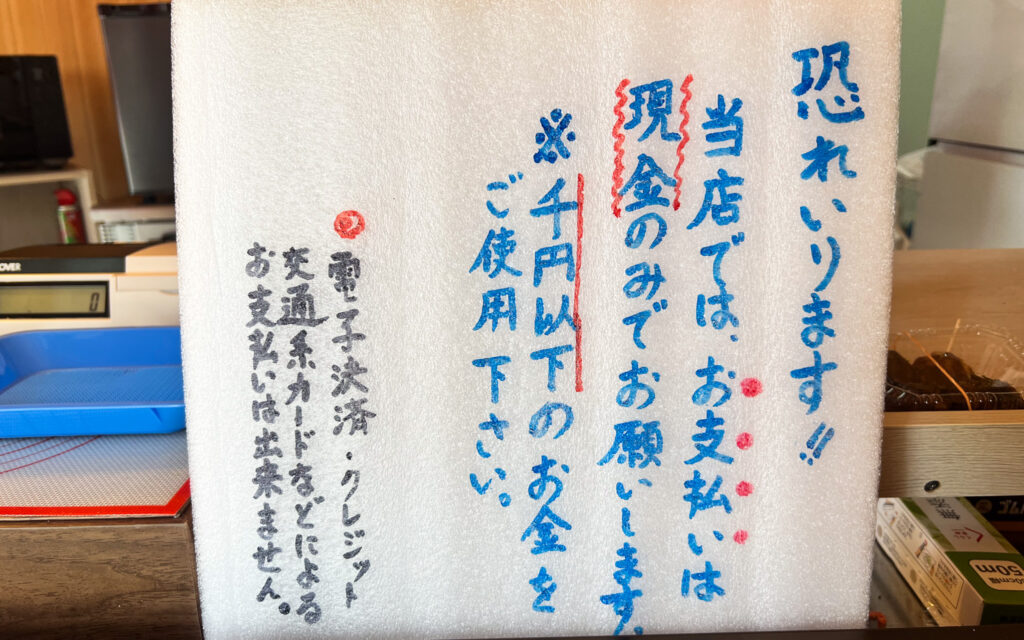 恐れいります!!
当店では、お支払いは
現金のみでお願いします。
※千円以下のお金を
ご使用下さい。
電子決済・クレジット
交通系カードなどによる
お支払いは出来ません。
OVER
0
50m